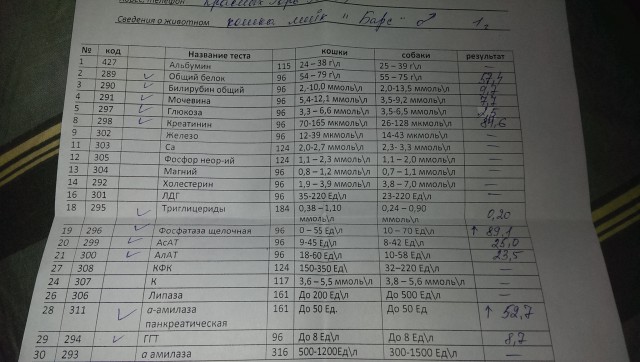 Сведения о животном кошка мейк "Барс" ♂ 1г
№ код Название теста кошки собаки результат
1 427 Альбумин 115 24 – 38 г\л 25 – 39 г\л —
2 289 ✓ Общий белок 96 54 – 79 г\л 55 – 75 г\л 57,4
3 290 ✓ Билирубин общий 96 2,-10,0 ммоль\л 2,0-13,5 ммоль\л 9,7
4 291 ✓ Мочевина 96 5,4-12,1 ммоль\л 3,5-9,2 ммоль\л 7,7
5 297 ✓ Глюкоза 96 3,3 – 6,6 ммоль\л 3,5-6,5 ммоль\л
8 298 ✓ Креатинин 96 70-165 мкмоль\л 26-128 мкмоль\л 84,6
9 302 Железо 96 12-39 мкмоль\л 14-43 мкмоль\л —
11 303 Ca 124 2,0-2,7 ммоль\л 2,3- 3,3 ммоль\л —
12 305 Фосфор неор-ий 124 1,1 – 2,3 ммоль\л 1,1 – 2,0 ммоль\л —
13 304 Магний 96 0,8 – 1,2 ммоль\л 0,7 – 1,1 ммоль\л —
14 292 Холестерин 96 1,9 – 3,9 ммоль\л 3,8 – 7,0 ммоль\л —
16 301 ЛДГ 96 35-220 Ед\л 23-220 Ед\л —
18 295 ✓ Триглицериды 184 0,38 – 1,10 0,24 – 0,90 0,20
ммоль\л ммоль\л
19 296 ✓ Фосфатаза щелочная 96 0 – 55 Ед\л 10 – 70 Ед\л ↑ 89,1
20 299 ✓ АсАТ 96 9-45 Ед\л 8-42 Ед\л 25,0
21 300 ✓ АлАТ 96 18-60 Ед\л 10-58 Ед\л 23,5
27 308 КФК 124 150-350 Ед\л 32–220 Ед\л —
24 307 К 117 3,6 – 5,5 ммоль\л 3,8 – 5,6 ммоль\л —
26 306 Липаза 161 До 200 Ед\л До 500 Ед\л —
28 311 ✓ α-амилаза 161 До 50 Ед. До 50 Ед ↑ 52,7
панкреатическая
29 294 ✓ ГГТ 96 До 8 Ед\л До 8 Ед\л 8,7
30 293 α амилаза 316 500-1200Ед\л 300-1500 Ед\л —